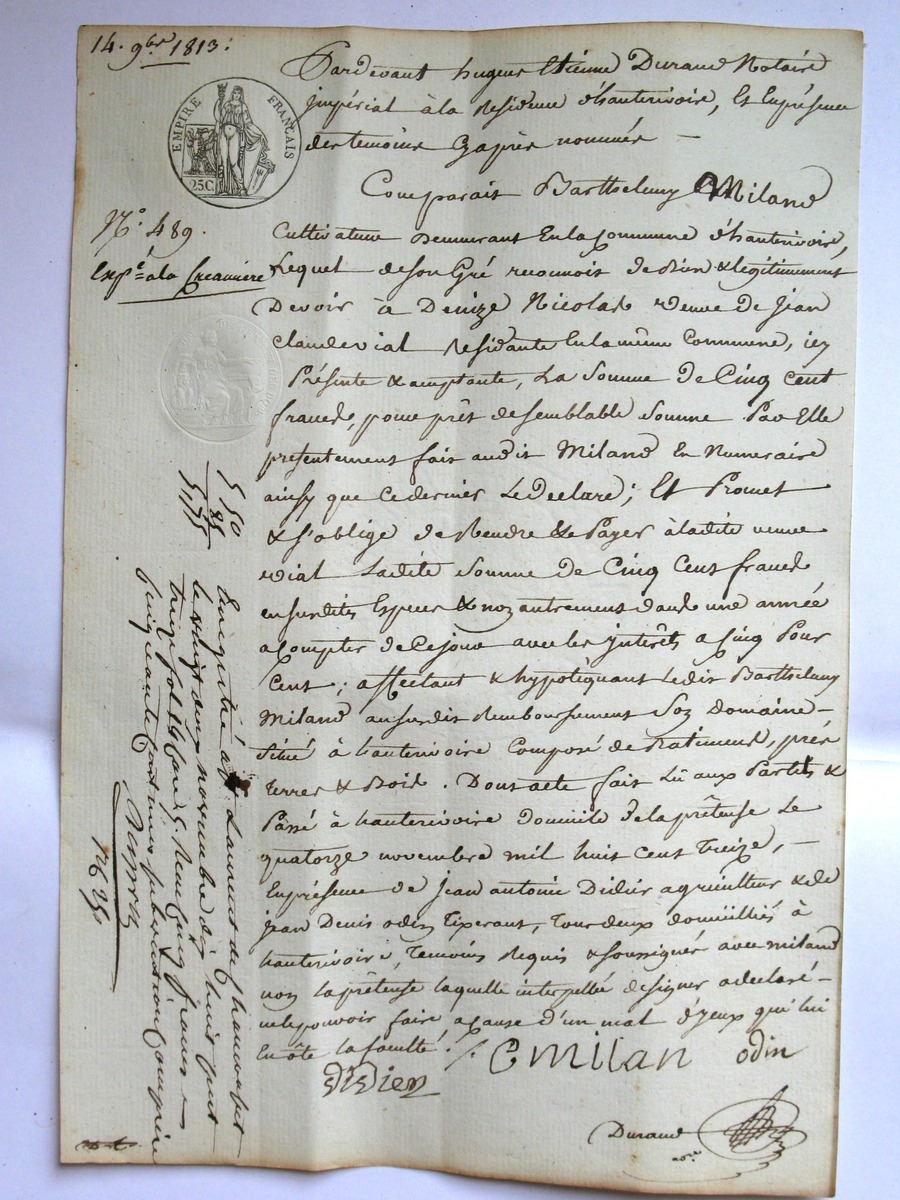 14. 9bre 1813:
EMPIRE FRANÇAIS
25 C.
Pardevant hugues Etiénne Durand Notaire
impérial à la Residence d'hauterivoire, Et En présence
des temoins Cyaprès nommés —
Comparait Barthelemy Miland
N.º 489.
Exp.é a la Creancière
Cultivateur Demeurant En la Commune d'hauterivoire,
Lequel de son Gré reconnoit de bien & légitimement
Devoir à Denize Nicolas veuve de jean
claude vial Residante En la même Commune, icy
Présente & acceptante, La Somme de Cinq Cent
francs, pour prêt de semblable Somme Par Elle
presentement fait audit Miland En Numeraire
ainsy que ce dernier Le Declare; Et Promet
& s'oblige de Rendre & Payer à ladite veuve
vial Ladite Somme de Cinq Cent francs
en susdites Especes & non autrement dans une année
a compter de Ce jour avec les Intérêts a Cinq Pour
Cent; affectant & hypotéquant Ledit Barthelemy
Miland au susdit Remboursement Son Domaine —
Situé à hauterivoire Composé de Batiments, prés
terres & Bois. Dont acte fait Lû aux Parties &
Passé à hauterivoire Domicile de la prêteuse Le
quatorze novembre mil huit cent treize, —
En présence de jean antoine Didier agriculteur & de
jean Denis odin Tixerant, Tous deux domiciliés à
hauterivoire, Temoins Requis & soussignés avec miland
non la prêteuse laquelle interpellée de signer a declaré —
ne le pouvoir faire a cause d'un mal d'yeux qui lui
En ôte la faculté ./.
C milan odin
Didier
Durand
nore
5 50
Enregistré à St Laurent de Chamousset
le vingt deux novembre dix huit cent
treize fol. C. 5. Reçu Cinq francs —
cinquante Centimes subvention Comprise